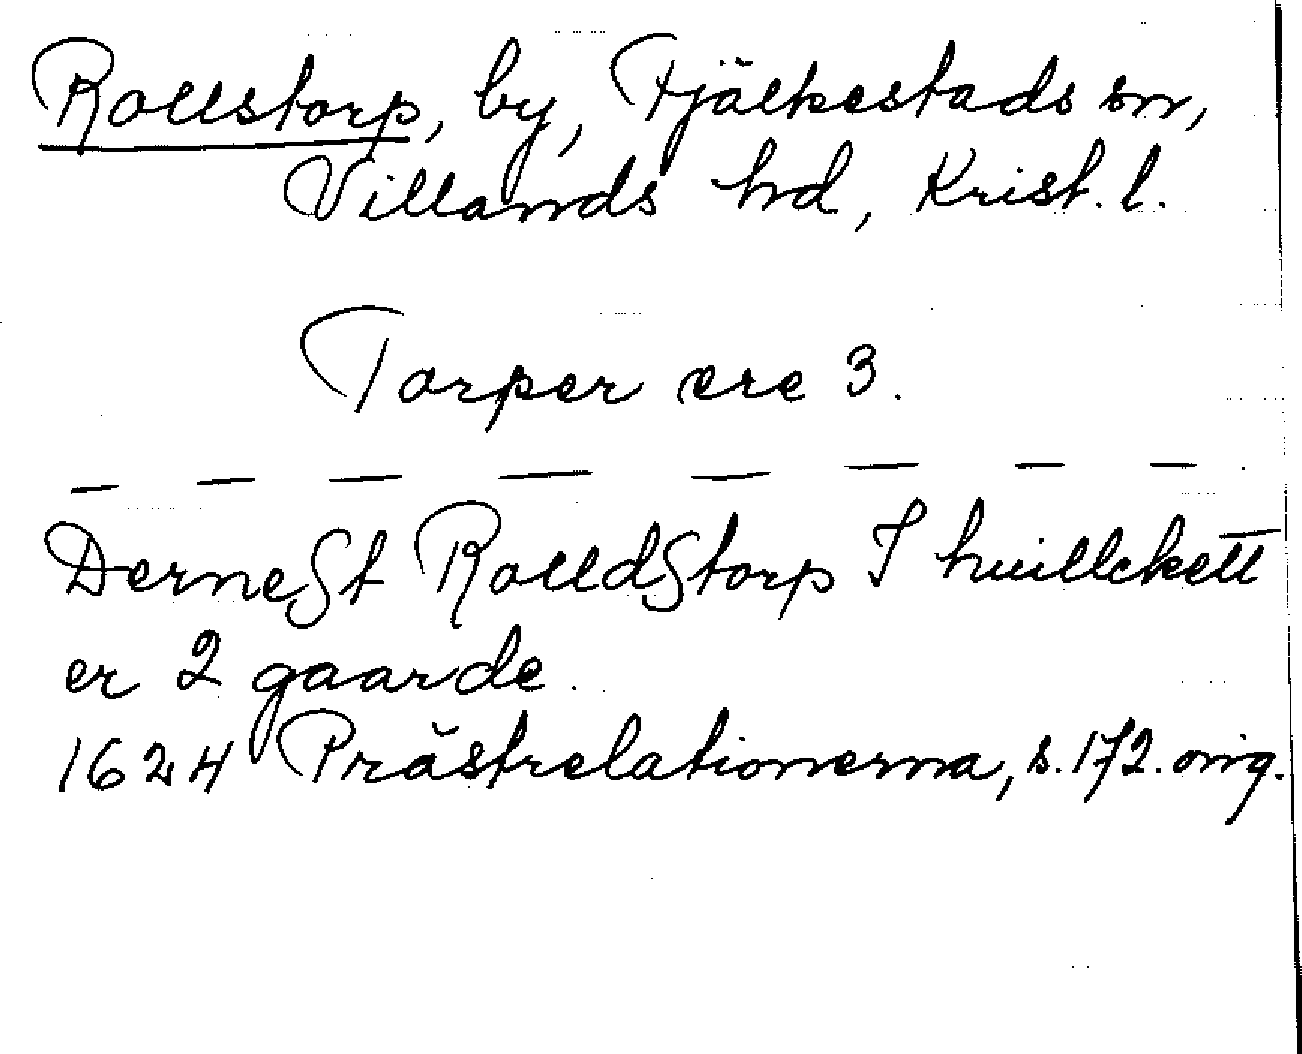 Rollstorp, by, Fjälkestads sn,
Villands hd, Krist. l.
Torper ere 3.
— — — — — — — —
Dernest Rolldstorp I huillckett
er 2 gaarde.
1624 Prästrelationerna, s. 172. orig.